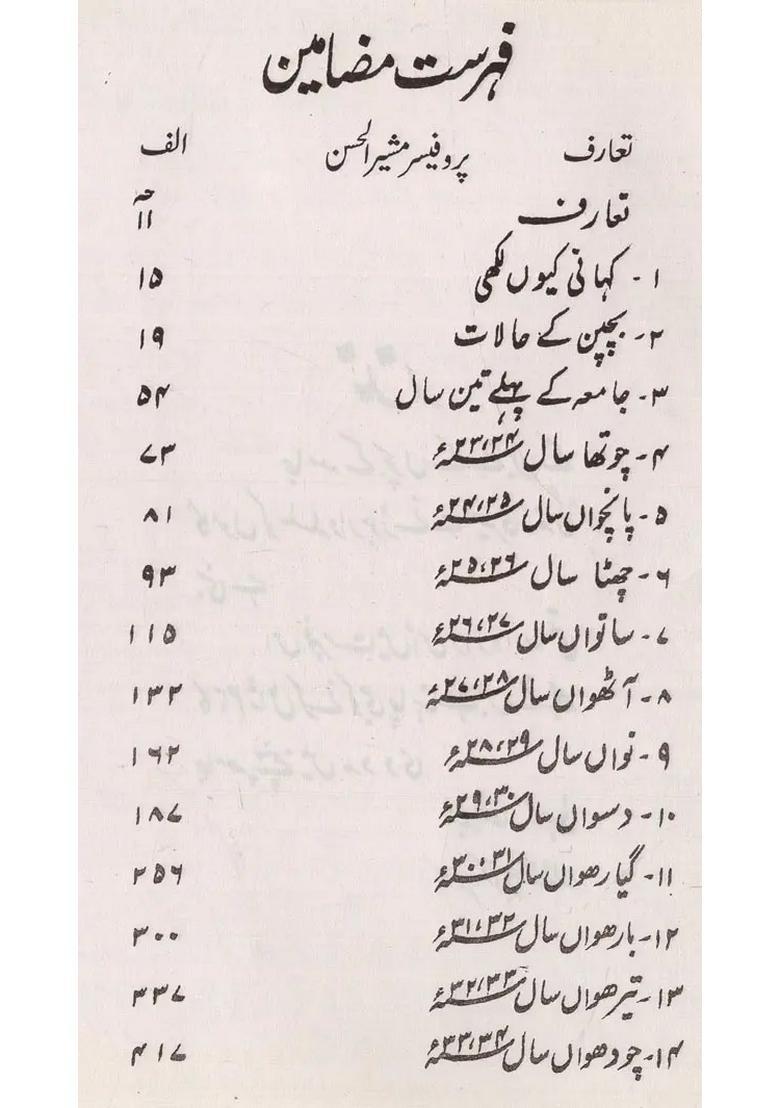 فہرست مضامین
تعارف پروفیسر مشیر الحسن الف
تعارف ۱۱
۱- کہانی کیوں لکھی ۱۵
۲- بچپن کے حالات ۱۹
۳- جامعہ کے پہلے تین سال ۵۴
۴- چوتھا سال ۲۳،۲۴ء ۷۳
۵- پانچواں سال ۲۴،۲۵ء ۸۱
۶- چھٹا سال ۲۵،۲۶ء ۹۳
۷- ساتواں سال ۲۶،۲۷ء ۱۱۵
۸- آٹھواں سال ۲۷،۲۸ء ۱۳۲
۹- نواں سال ۲۸،۲۹ء ۱۶۲
۱۰- دسواں سال ۲۹،۳۰ء ۱۸۷
۱۱- گیارھواں سال ۳۰،۳۱ء ۲۵۶
۱۲- بارھواں سال ۳۱،۳۲ء ۳۰۰
۱۳- تیرھواں سال ۳۲،۳۳ء ۳۳۷
۱۴- چودھواں سال ۳۳،۳۴ء ۴۱۷